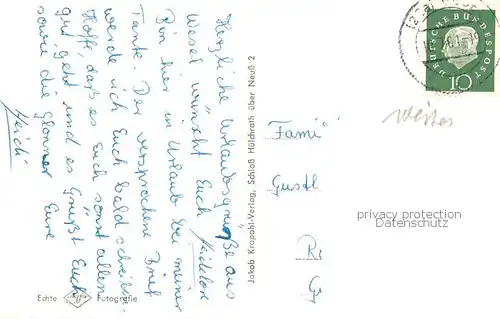 Herzliche Urlaubsgrüße aus
Wesel wünscht Euch
Bin hier in Urlaub bei meiner
Tante. Der versprochene Brief
werde ich Euch bald schreiben.
Hoffe daß es Euch sonst allen
gut geht und es Grüßt Euch
sowie die Glonner Eure
Heidi
Echte Fotografie
Jakob Krapohl-Verlag, Schloß Hülchrath über Neuß 2
DEUTSCHE BUNDESPOST
10
Fami
Gustl
privacy protection
Datenschutz